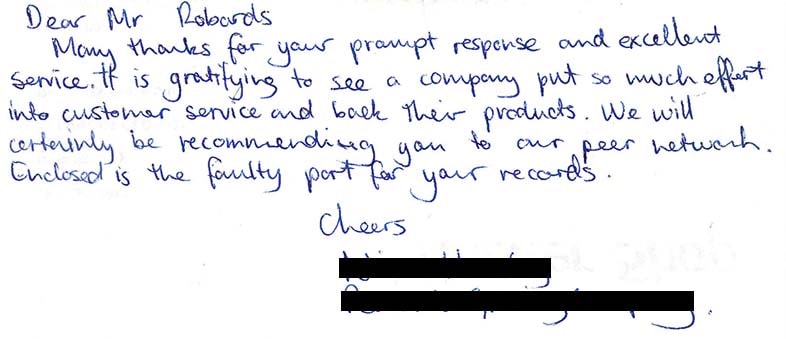 Dear Mr Robards
Many thanks for your prompt response and excellent
service. It is gratifying to see a company put so much effort
into customer service and back their products. We will
certainly be recommending you to our peer network.
Enclosed is the faulty part for your records.
Cheers